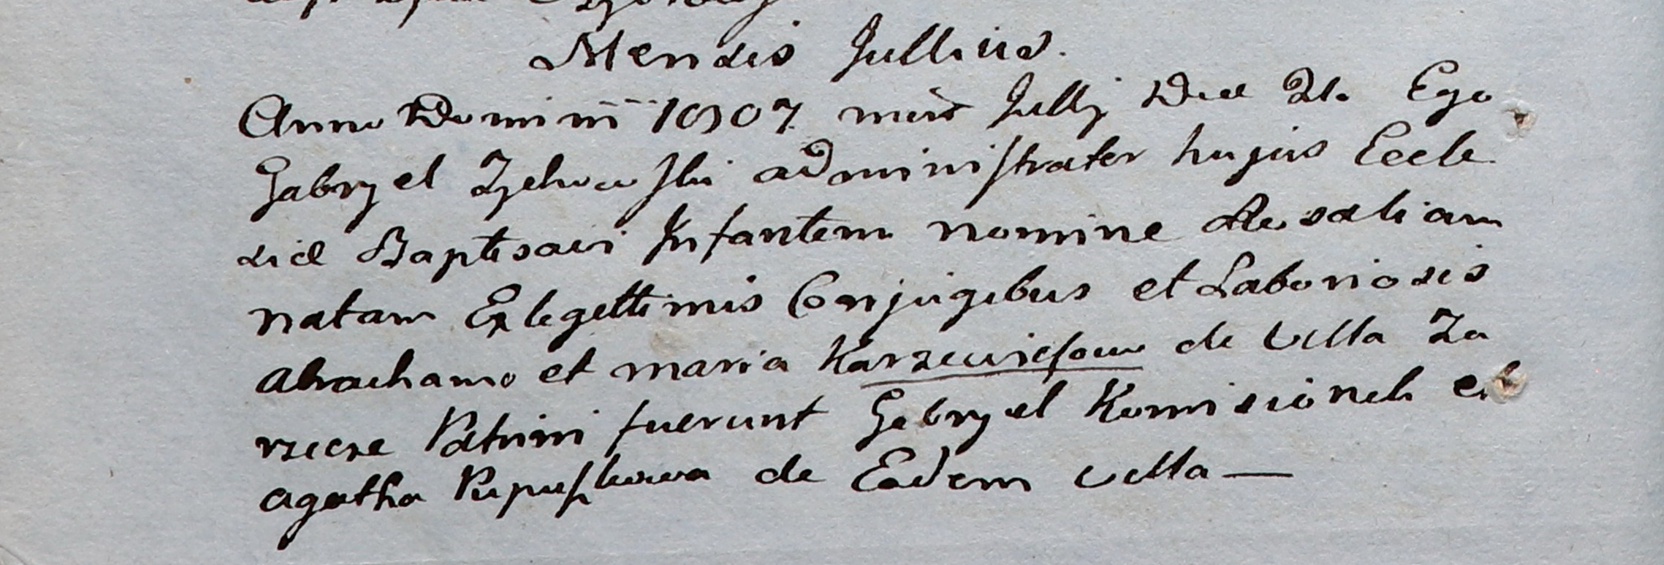 Mensis Jullius.
Anno Domini 1807 mens Jullij Die 21. Ego
Gabryel administrator hujus Eccle
siæ Baptisavi Infantem nomine Rosaliam
natam Ex legettimis Conjugibus et Laboriosis
Abrahamo et maria de Villa Za
rzecze Patrini fuerunt Gabryel Komisionek et
agatha de Eadem villa —